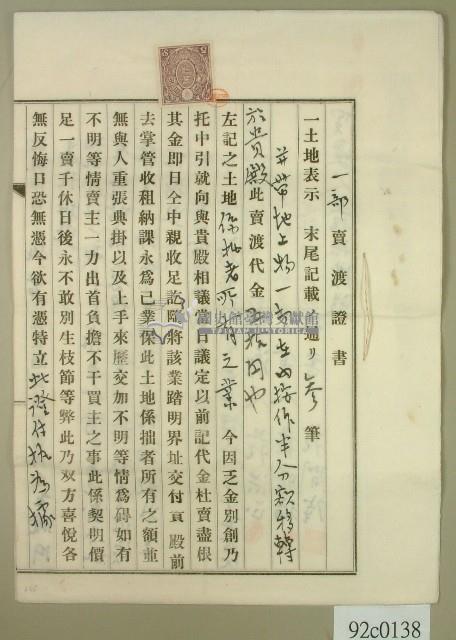 一部賣渡證書
一土地表示 末尾記載ノ通リ 參筆
並帶地上物一 在內 作半分額移轉
於貴殿此賣渡代金 圓也
左記之土地係拙者所有之業 今因乏金別創乃
托中引就向與貴殿相議當日議定以前記代金杜賣盡根
其金即日仝中親收足訖隨將該業踏明界址交付貴殿前
去掌管收租納課永為己業保此土地係拙者所有之額並
無與人重張典掛以及上手來歷交加不明等情為碍如有
不明等情賣主一力出首負擔不干買主之事此係契明價
足一賣千休日後永不敢別生枝節等弊此乃双方喜悅各
無反悔口恐無憑今欲有憑特立此證付執為據
國史館臺灣文獻館
TAIWAN HISTORICA
92c0138